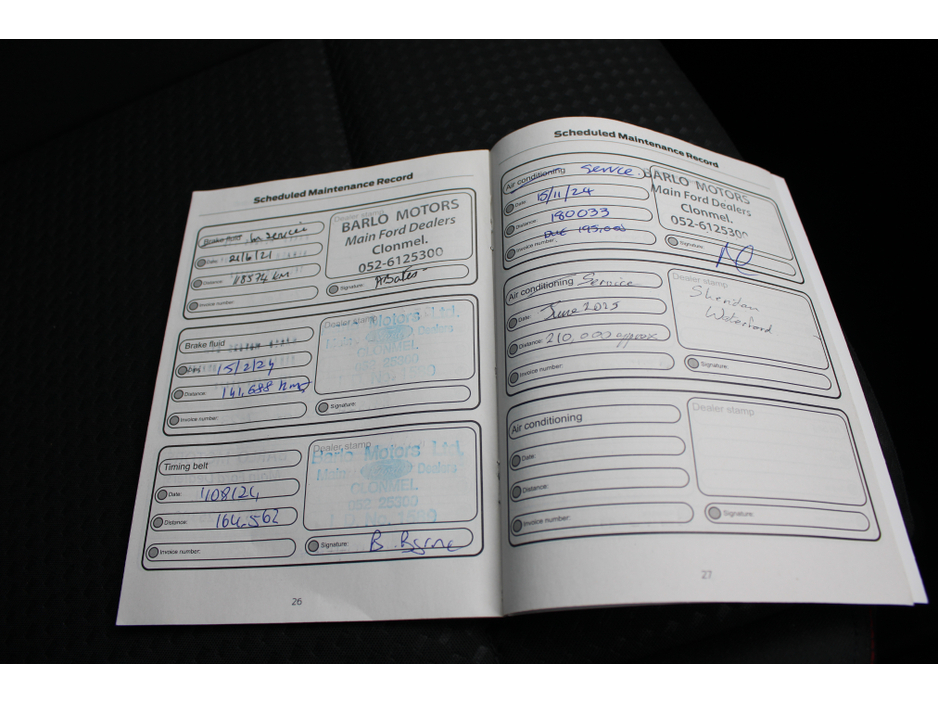 Scheduled Maintenance Record
Brake fluid
Date: 21/6/21
Distance: 118574 km
Invoice number:
Dealer stamp
BARLO MOTORS
Main Ford Dealers
Clonmel.
052-6125300
Signature:
Brake fluid
Date: 15/2/24
Distance: 141,688 kms
Invoice number:
Dealer stamp
Motors Ltd.
Dealers
CLONMEL
25300
Signature:
Timing belt
Date: 1/08/24
Distance: 164,562
Invoice number:
Dealer stamp
Barlo Motors Ltd.
Main Dealers
CLONMEL
052 25300
Signature: B. Byrne
26
Scheduled Maintenance Record
Air conditioning Service.
Date: 15/11/24
Distance: 180033
Due 195,000
Invoice number:
BARLO MOTORS
Main Ford Dealers
Clonmel.
052-6125300
Signature:
Air conditioning Service
Date: June 2025
Distance: 210,000 approx
Invoice number:
Dealer stamp
Sheridan
Waterford
Signature:
Air conditioning
Date:
Distance:
Invoice number:
Dealer stamp
Signature:
27